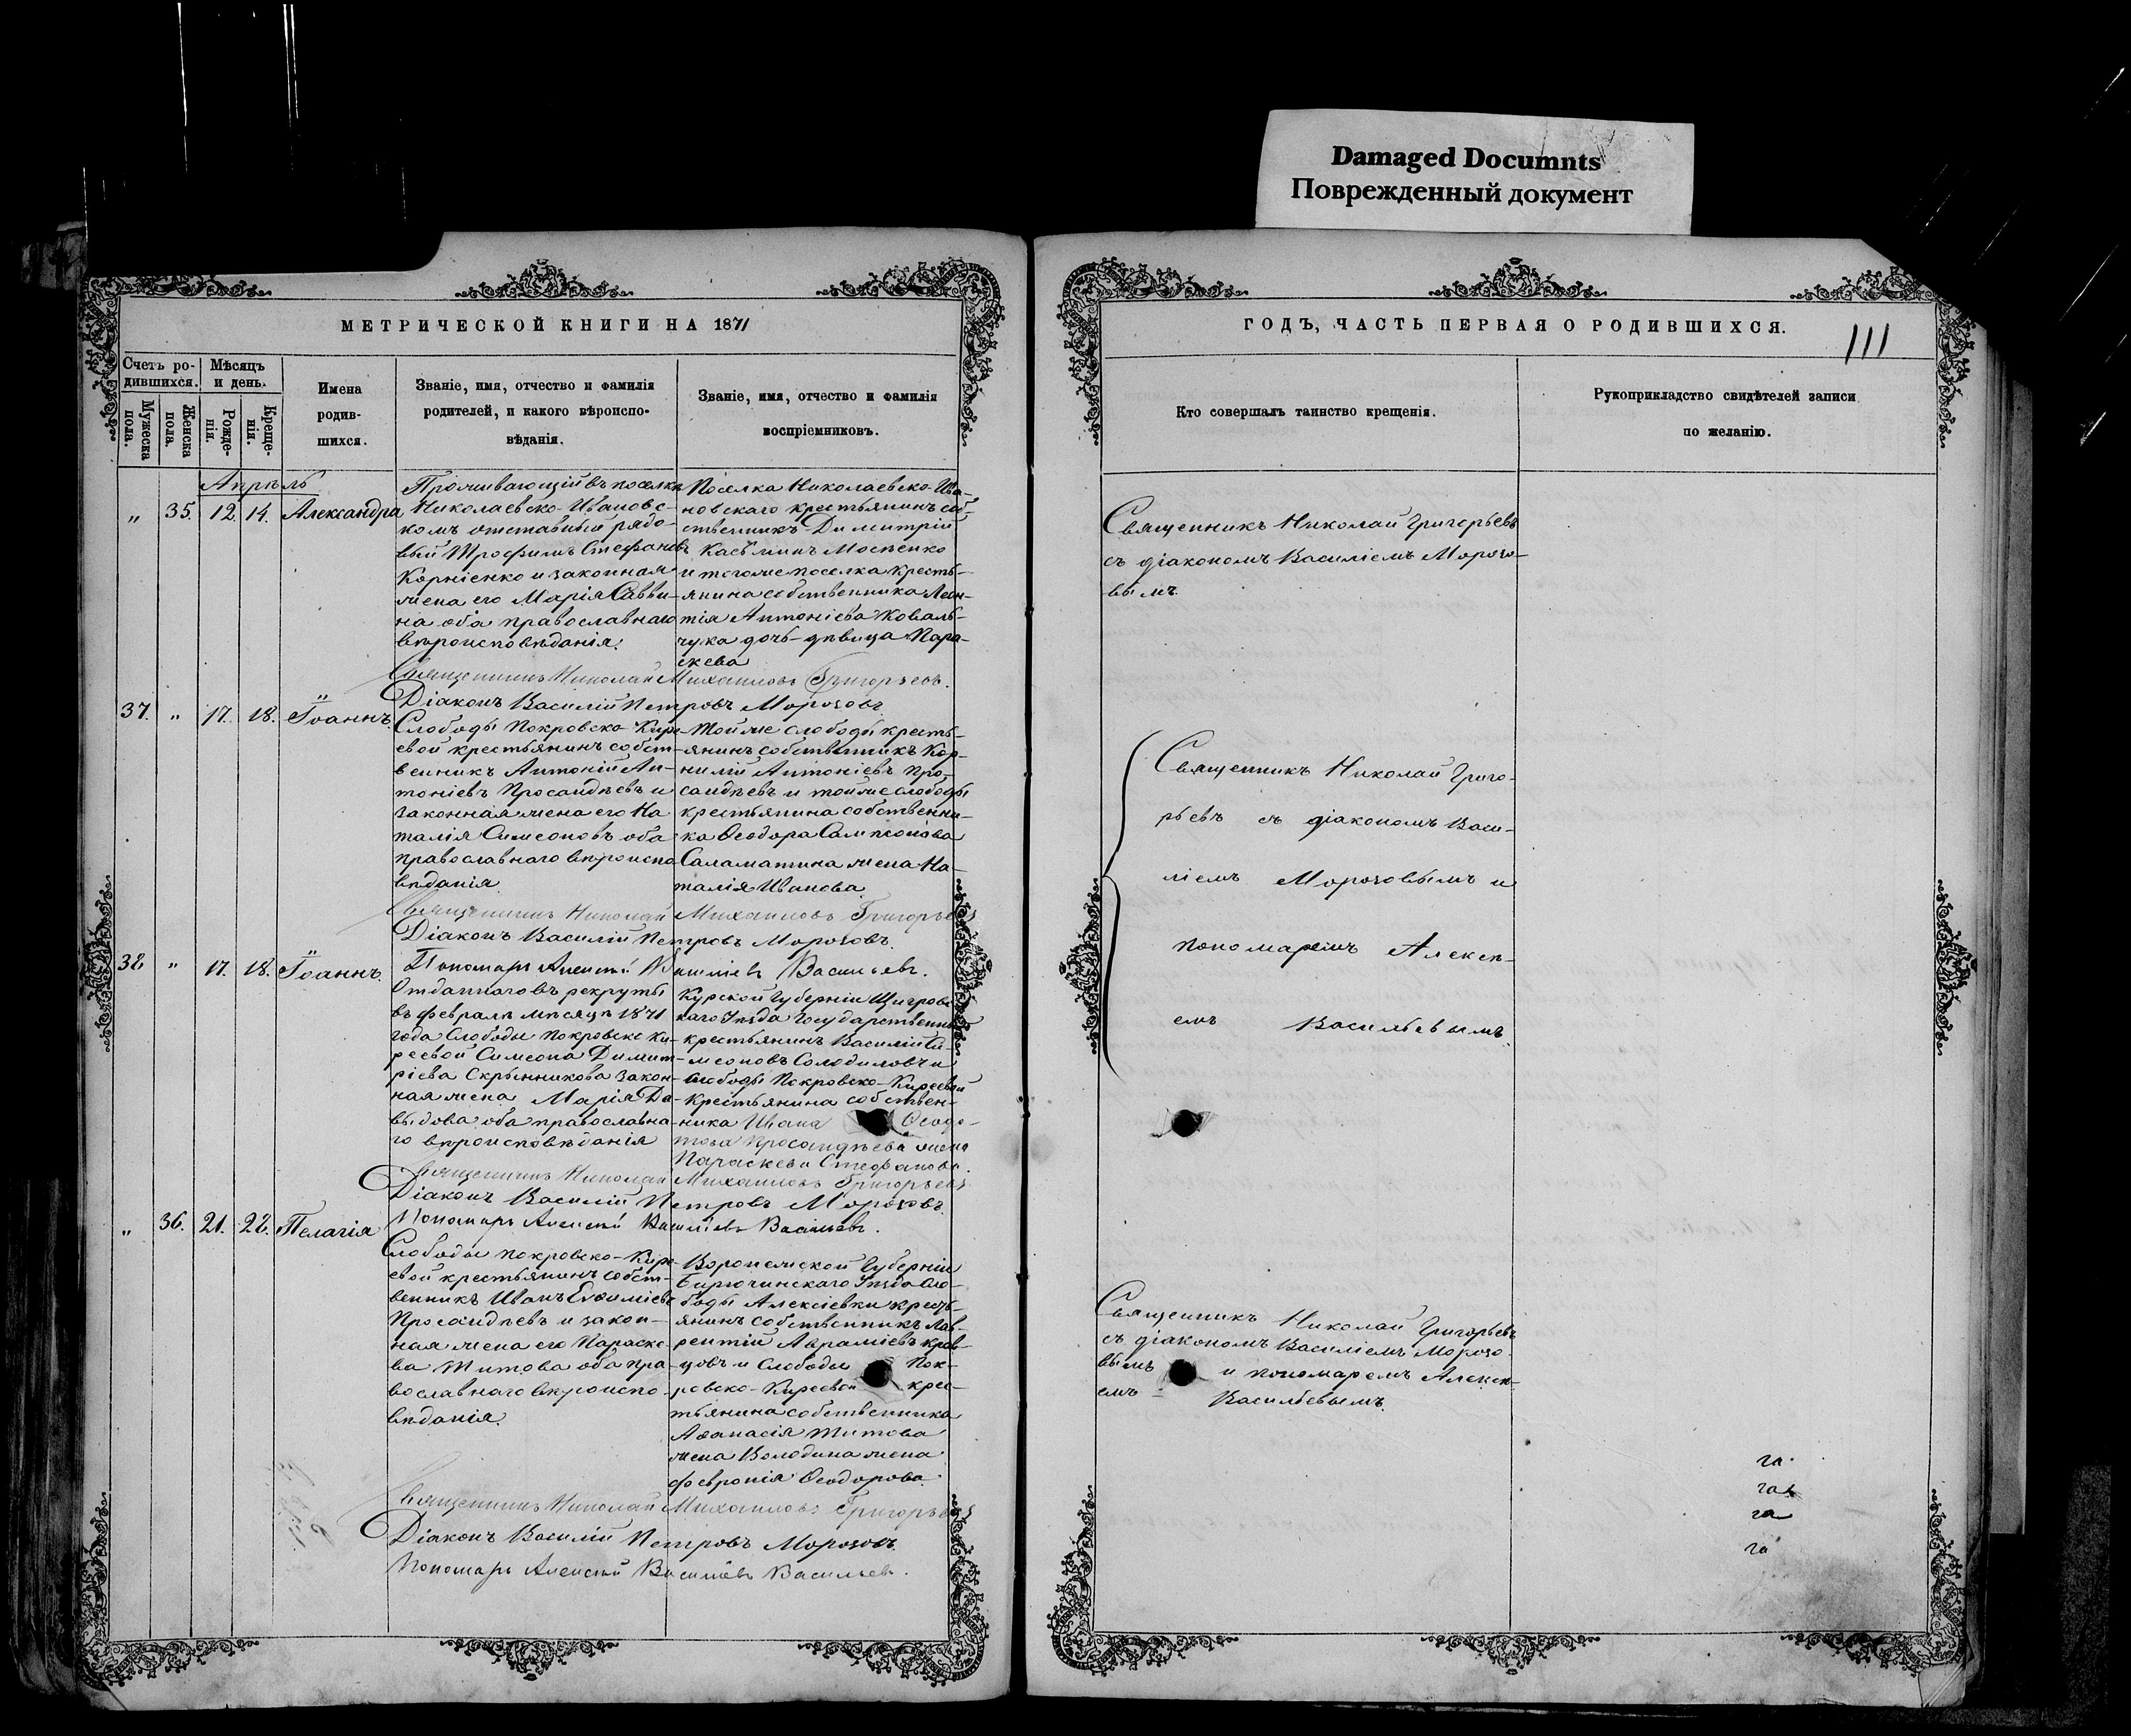 Damaged Documnts
Поврежденный документ
МЕТРИЧЕСКОЙ КНИГИ НА 1871
Счетъ ро-
дившихся.
Мужеска
пола.
Женска
пола.
Мѣсяцъ
и день.
Рожде-
нія.
Креще-
нія.
Имена
родив-
шихся.
Званіе, имя, отчество и фамилія
родителей, и какого вѣроиспо-
вѣданія.
Званіе, имя, отчество и фамилія
воспріемниковъ.
Апрѣль
„ 35. 12. 14. Александра
Проживающій въ поселкѣ
Николаевско-Ивановс-
комъ отставный рядо-
вый Трофимъ Стефановъ
Корніенко и законная
жена его Марія Савви-
на оба православнаго
вѣроисповѣданія.
Поселка Николаевско-Ива-
новскаго крестьянинъ соб-
ственникъ Димитрій
Касьминъ Мосненко
и тогоже поселка кресть-
янина собственника Леон-
тія Антоніева Коваль-
чука дочь-дѣвица Пара-
скева
Священникъ Николай Михаиловъ Григорьевъ.
Діаконъ Василій Петровъ Морозовъ
37. „ 17. 18. Іоаннъ.
Слободы Покровско-Кире-
евой крестьянинъ собст-
венникъ Антоній Ан-
тоніевъ Просандѣевъ и
законная жена его На
талія Симеоновъ оба
православнаго вѣроиспо
вѣданія.
Тойже слободы кресть-
янинъ собственникъ Кор-
нилій Антоніевъ Про-
сандѣевъ и тойже слободы
крестьянина собственни-
ка Ѳеодора Сампсонова
Саламатина жена На-
талія Иванова
Священникъ Николай Михаиловъ Григорьевъ
Діаконъ Василій Петровъ Морозовъ.
Пономарь Алексій Василіевъ Васильевъ.
38. „ 17. 18. Іоаннъ.
Отданнаго въ рекруты
въ февралѣ мѣсяцѣ 1871
года Слободы Покровско Ки-
реевой Симеона Димит-
ріева Скрынникова закон-
ная жена Марія Да-
выдова оба православна-
го вѣроисповѣданія
Курской Губерніи Щигровс
каго Уѣзда Государственный
крестьянинъ Василій Си-
меоновъ Солодиловъ и
слободы Покровско-Киреевой
крестьянина собствен-
ника Ивана Ѳеодо-
това Просандѣева жена
Параскева Стефанова.
Священникъ Николай Михаиловъ Григорьевъ
Діаконъ Василій Петровъ Морозовъ.
Пономарь Алексій Василіевъ Васильевъ.
„ 36. 21. 22. Пелагія
Слободы Покровско-Кире-
евой крестьянинъ собст-
венникъ Иванъ Евѳиміевъ
Просандѣевъ и закон-
ная жена его Параске-
ва Титова оба пра-
вославнаго вѣроиспо-
вѣданія.
Воронежской Губерніи
Бирючинскаго Уѣзда Сло-
боды Алексіевки кресть-
янинъ собственникъ Лав-
рентій Авраміевъ Крав-
цовъ и Слободы Пок-
ровско-Киреевой крес-
тьянина собственника
Аѳанасія Титова
жена Володина жена
Февронія Ѳеодорова.
Священникъ Николай Михаиловъ Григорьевъ
Діаконъ Василій Петровъ Морозовъ.
Пономарь Алексій Василіевъ Васильевъ.
ГОДЪ, ЧАСТЬ ПЕРВАЯ О РОДИВШИХСЯ.
111
Кто совершалъ таинство крещенія.
Рукоприкладство свидѣтелей записи
по желанію.
Священникъ Николай Григорьевъ
съ діакономъ Василіемъ Морозо-
вымъ
Священникъ Николай Григо-
рьевъ съ діакономъ Васи-
ліемъ Морозовымъ и
пономаремъ Алексѣ-
емъ Васильевымъ.
Священникъ Николай Григорьевъ
съ діакономъ Василіемъ Морозо-
вымъ и пономаремъ Алексѣ-
емъ Васильевымъ.
га
га
га
га